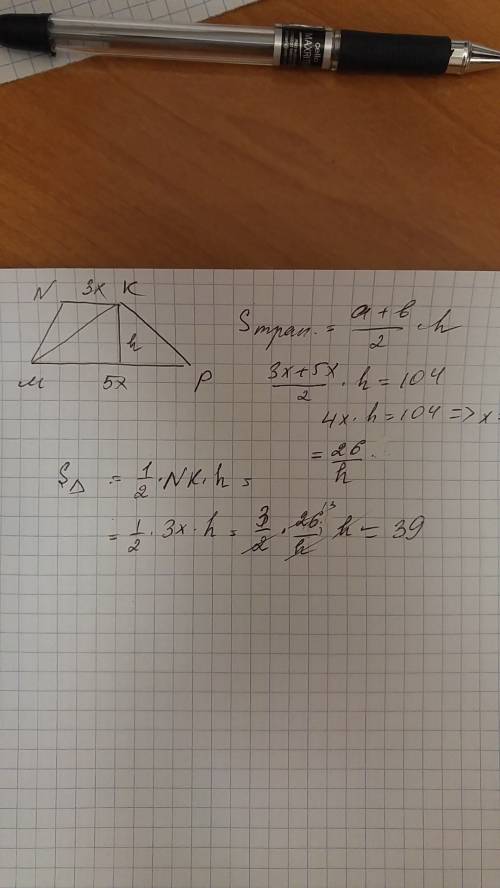 cello
MAXRITER
N 3x K
h
M 5x P
Sтрап. = (a + b)/2 · h
(3x + 5x)/2 · h = 104
4x · h = 104 => x =
= 26/h
S△ = 1/2 · NK · h =
= 1/2 · 3x · h = 3/2 · 26/h 13 h = 39